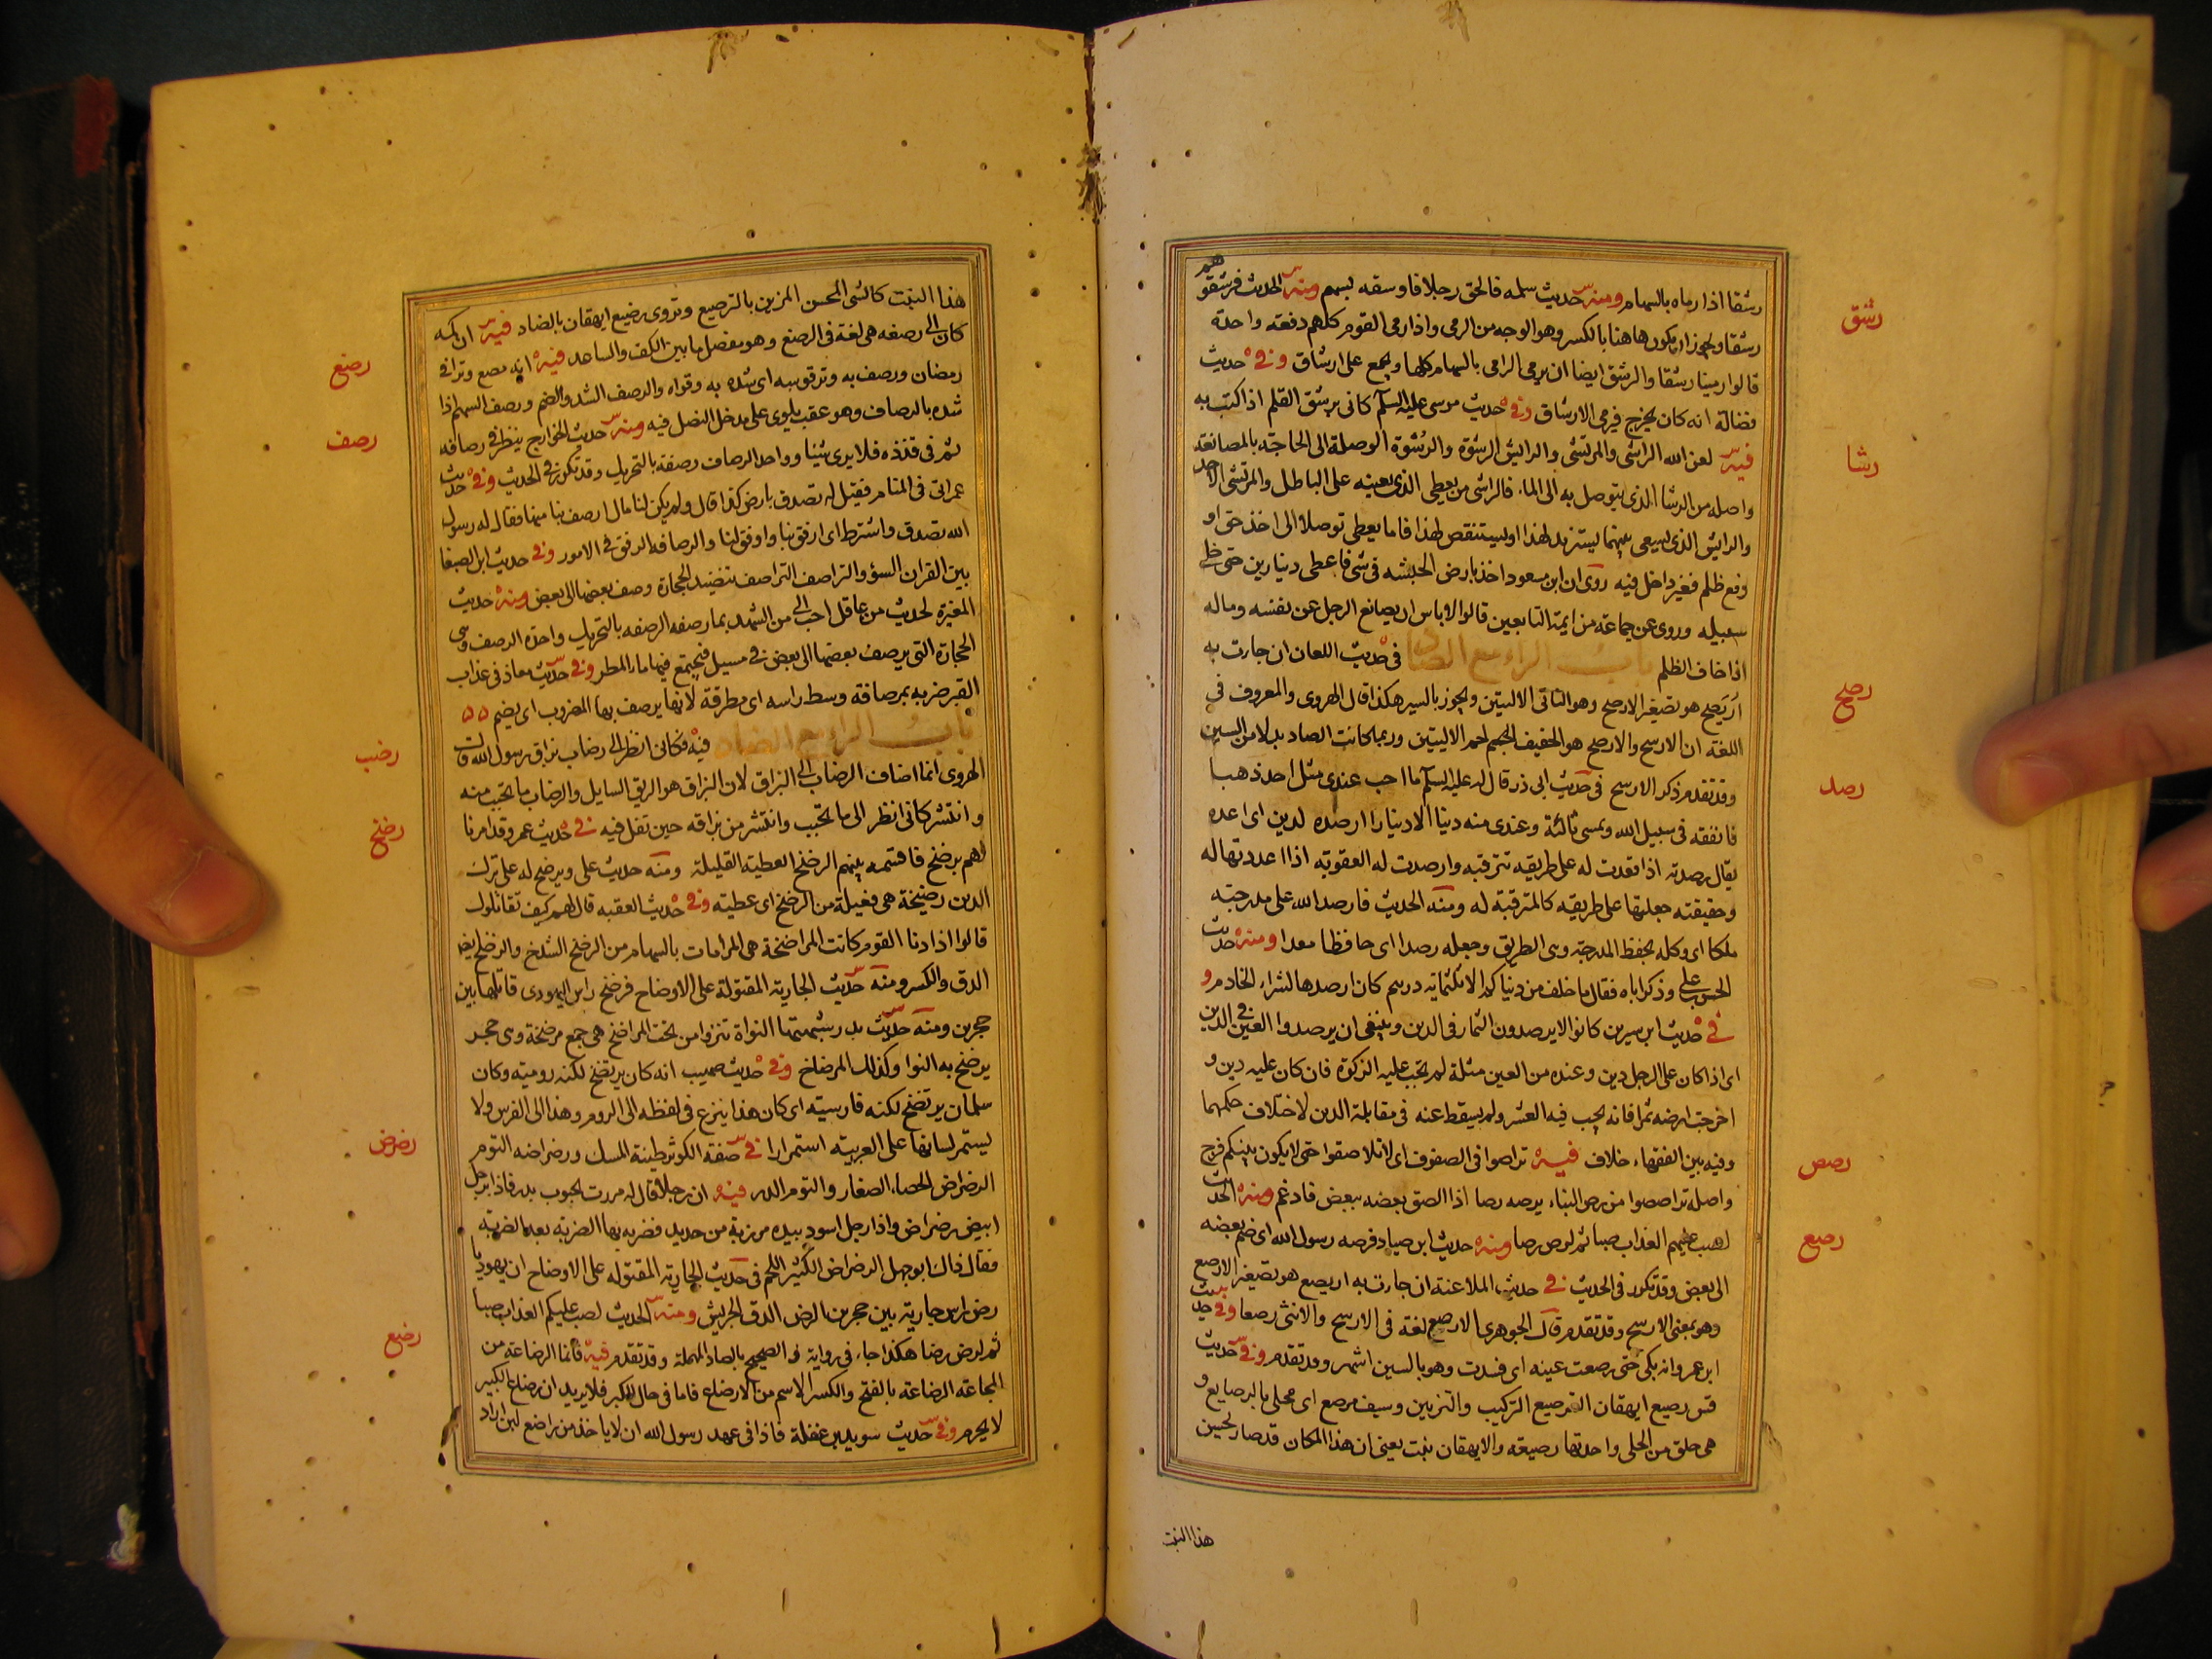 رشقا اذا رماه بالسهام ومنه حديث سلمه فالحق رجلا فاوسقه بسهم ومنه الحديث فرشقوهم
رشقا ويجوز ان يكون هاهنا بالكسر وهو الوجه من الرمى واذا رمى القوم كلهم دفعه واحدة
قالوا رمينا رشقا والرشق ايضا ان يرمى الرامى بالسهام كلها ويجمع على ارشاق وفى حديث
فضالة انه كان يخرج فيرمى الارشاق وفى حديث موسى عليه السلم كانى برشق القلم اذا كتب به
فيه لعن الله الراشى والمرتشى والرايش الرشوة والرشوة الوصلة الى الحاجة بالمصانعة
واصله من الرشا الذى يتوصل به الى الماء فالراشى من يعطى الذى يعينه على الباطل والمرتشى الاخذ
والرايش الذى يسعى بينهما يستزيد لهذا او يستنقص لهذا فاما يعطى توصلا الى اخذ حق او
دفع ظلم فغير داخل فيه روى ان ابن مسعود اخذ بارض الحبشه فى شى فاعطى دينارين حتى خلى
سبيله وروى عن جماعة من ايمة التابعين قالوا لا باس ان يصانع الرجل عن نفسه وماله
اذا خاف الظلم باب الراء مع الصاد فى حديث اللعان ان جارت به
اريصح هو تصغير الارصح وهو الناتى الاليتين ويجوز بالسين هكذا قال الهروى والمعروف فى
اللغة ان الارسح والارصح هو الخفيف لحم الاليتين وربما كانت الصاد بدلا من السين
وقد تقدم ذكر الارسح فى حديث ابى ذر قال له عليه السلم ما احب عندى مثل احد ذهبا
فانفقه فى سبيل الله وتمسى ثالثة وعندى منه دينا الا دينارا ارصده لدين اى اعده
يقال رصدته اذا قعدت له على طريقه تترقبه وارصدت له العقوبة اذا اعددتها له
وحقيقته جعلتها على طريقه كالمترقبة له ومنه الحديث فارصد الله على مدرجته
ملكا اى وكله بحفظ المدرجة وهى الطريق وجعله رصدا اى حافظا معدا ومنه حديث
الحسن بن على وذكر اباه فقال ما خلف من دنياكم الا ثلثماية درهم كان ارصدها لشراء الخادم و
فى حديث ابن سيرين كانوا لا يرصدون الثمار فى الدين وينبغى ان يرصدوا العين فى الدين
اى اذا كان على الرجل دين وعنده من العين مثله لم تجب عليه الزكوة فان كان عليه دين و
اخرجت ارضه ثمرا فانه يجب فيه العشر ولم يسقط عنه فى مقابلة الدين لاختلاف حكمهما
وفيه بين الفقهاء خلاف فيه تراصوا فى الصفوف اى لا تلاصقوا حتى لا يكون بينكم فرج
واصله تراصصوا من رص البناء يرصه رصا اذا الصق بعضه ببعض فادغم ومنه الحديث
لصب عليهم العذاب صبا ثم لرص رصا ومنه حديث ابن صياد فرصه رسول الله اى ضم بعضه
الى بعض وقد تكرر فى الحديث فى حديث الملاعنة ان جارت به اريصع هو تصغير الارصع
وهو بمعنى الارسح وقد تقدم قال الجوهرى الارصع لغة فى الارسح والانثى رصعا وفى حديث
ابن عمر وانه بكى حتى رصعت عينه اى فسدت وهو بالسين اشهر وقد تقدم وفى حديث
قس رصيع ايهقان الترصيع التركيب والتزيين وسيف مرصع اى محلى بالرصايع و
هى حلق من الحلى واحدتها رصيعة والايهقان نبت يعنى ان هذا المكان قد صار بحسن
رشق
رشا
رصح
رصد
رصص
رصع
هذا النبت
هذا النبت كالشى المحسن المزين بالترصيع وتروى رضيع ايهقان بالضاد فيه ان كمه
كان الى رصغه هى لغة فى الرسغ وهو مفصل ما بين الكف والساعد فيه انه مضغ وترا فى
رمضان ورصف به وترقوسه اى شده به وقواه والرصف الشد والضم ورصف السهم اذا
شده بالرصاف وهو عقب يلوى على مدخل النصل فيه ومنه حديث الخوارج ينظر فى رصافه
ثم فى قذذه فلا يرى شيئا وواحد الرصاف رصفة بالتحريك وقد تكرر فى الحديث وفى حديث
عمر اتى فى المنام فقيل له تصدق بارض كذا قال ولم يكن لنا مال ارصف بنا منها فقال له رسول
الله تصدق واشترط اى ارفق بنا واوفق لنا والرصافه الرفق فى الامور وفى حديث ابن الصبغا
بين القران السؤ والتراصف التراصف تنضيد الحجارة وصف بعضها الى بعض ومنه حديث
المغيرة لحديث من عاقل احب الى من الشهد بماء رصفه الرصفه بالتحريك واحدة الرصف وهى
الحجارة التى يرصف بعضها الى بعض فى مسيل فيجتمع فيها ماء المطر وفى حديث معاذ فى عذاب
القبر ضربه بمرصافة وسط راسه اى مطرقة لانها يرصف بها المضروب اى يضم
باب الراء مع الضاد فيه فكانى انظر الى رضاب بزاق رسول الله قال
الهروى انما اضاف الرضاب الى البزاق لان البزاق هو الريق السايل والرضاب ما تحبب منه
وانتشر كانى انظر الى ما تحبب وانتشر من بزاقه حين تفل فيه فى حديث عمر وقد امرنا
لهم برضخ فاقسمه بينهم الرضخ العطية القليلة ومنه حديث على ويرضخ له على ترك
الدين رضيخة هى فعيلة من الرضخ اى عطية وفى حديث العقبه قال لهم كيف تقاتلون
قالوا اذا دنا القوم كانت المراضخة هى المرامات بالسهام من الرضخ الشدخ والرضخ ايضا
الدق والكسر ومنه حديث الجارية المقتولة على الاوضاح فرضخ راس اليهودى قاتلها بين
حجرين ومنه حديث بدر شبهتها النواة تنزوا من تحت المراضخ هى جمع مرضخة وهى حجر
يرضخ به النوا وكذلك المرضاخ وفى حديث صهيب انه كان يرتضخ لكنه روميه وكان
سلمان يرتضخ لكنه فارسيه اى كان هذا ينزع فى لفظه الى الروم وهذا الى الفرس ولا
يستمر لسانها على العربيه استمرارا فى صفة الكوثر طينة المسك ورضراضه التوم
الرضراض الحصاء الصغار والتوم الدر فيه ان رجلا قال له مررت بجبوب بدر فاذا برجل
ابيض رضراض واذا رجل اسود بيده مرزبة من حديد فضربه بها الضربه بعد الضربة
فقال ذاك ابو جهل الرضراض الكثير اللحم فى حديث الجارية المقتوله على الاوضاح ان يهوديا
رض راس جارية بين حجرين الرض الدق الجريش ومنه الحديث لصب عليكم العذاب صبا
ثم لرض رضا هكذا جاء فى رواية والصحيح بالصاد المهملة وقد تقدم فيه فانما الرضاعة من
المجاعة الرضاعه بالفتح والكسر الاسم من الارضاع فاما فى حال الكبر فلا يريد ان رضاع الكبير
لا يحرم وفى حديث سويد بن غفلة فاذا فى عهد رسول الله ان لا ياخذ من راضع لبن اراد
رصغ
رصف
رضب
رضخ
رضرض
رضع